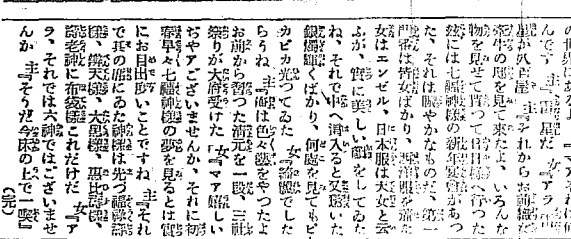 の世界にあるよ
んです 主『電星だ 女『アラ
星が八百屋 主『それからお前様だ
牽牛の庭を見て来たよ、いろんな
物を見せて貰つて 日様へ行つた
玆には七福神様の新年宴會があつ
た、それは賑やかなものだ、第一
門番は皆女ばかり、西洋服を着た
女はエンゼル、日本服は天女と云
ふが、實に美しい顔をしてゐた
ね、それで中へ這入ると又驚いた
銀燭輝くばかり、何處を見てもピ
カピカ光つてゐた 女『綺麗でした
らうね 主『俺は色々 をやつたよ
お前から習つた清元を一段、三社
祭りが大層受けた 女『マア嬉しい
ぢやアございませんか、それに初
春早々七福神様の夢を見るとは實
にお目出度いことですね 主『それ
で其の席にゐた神様は先づ福祿壽
様、辨天様、大黑様、惠比壽様、
壽老神に布袋様これだけだ 女『ア
ラ、それでは六神ではございませ
んか 主『そうだ今床の上で一喫』
(完)